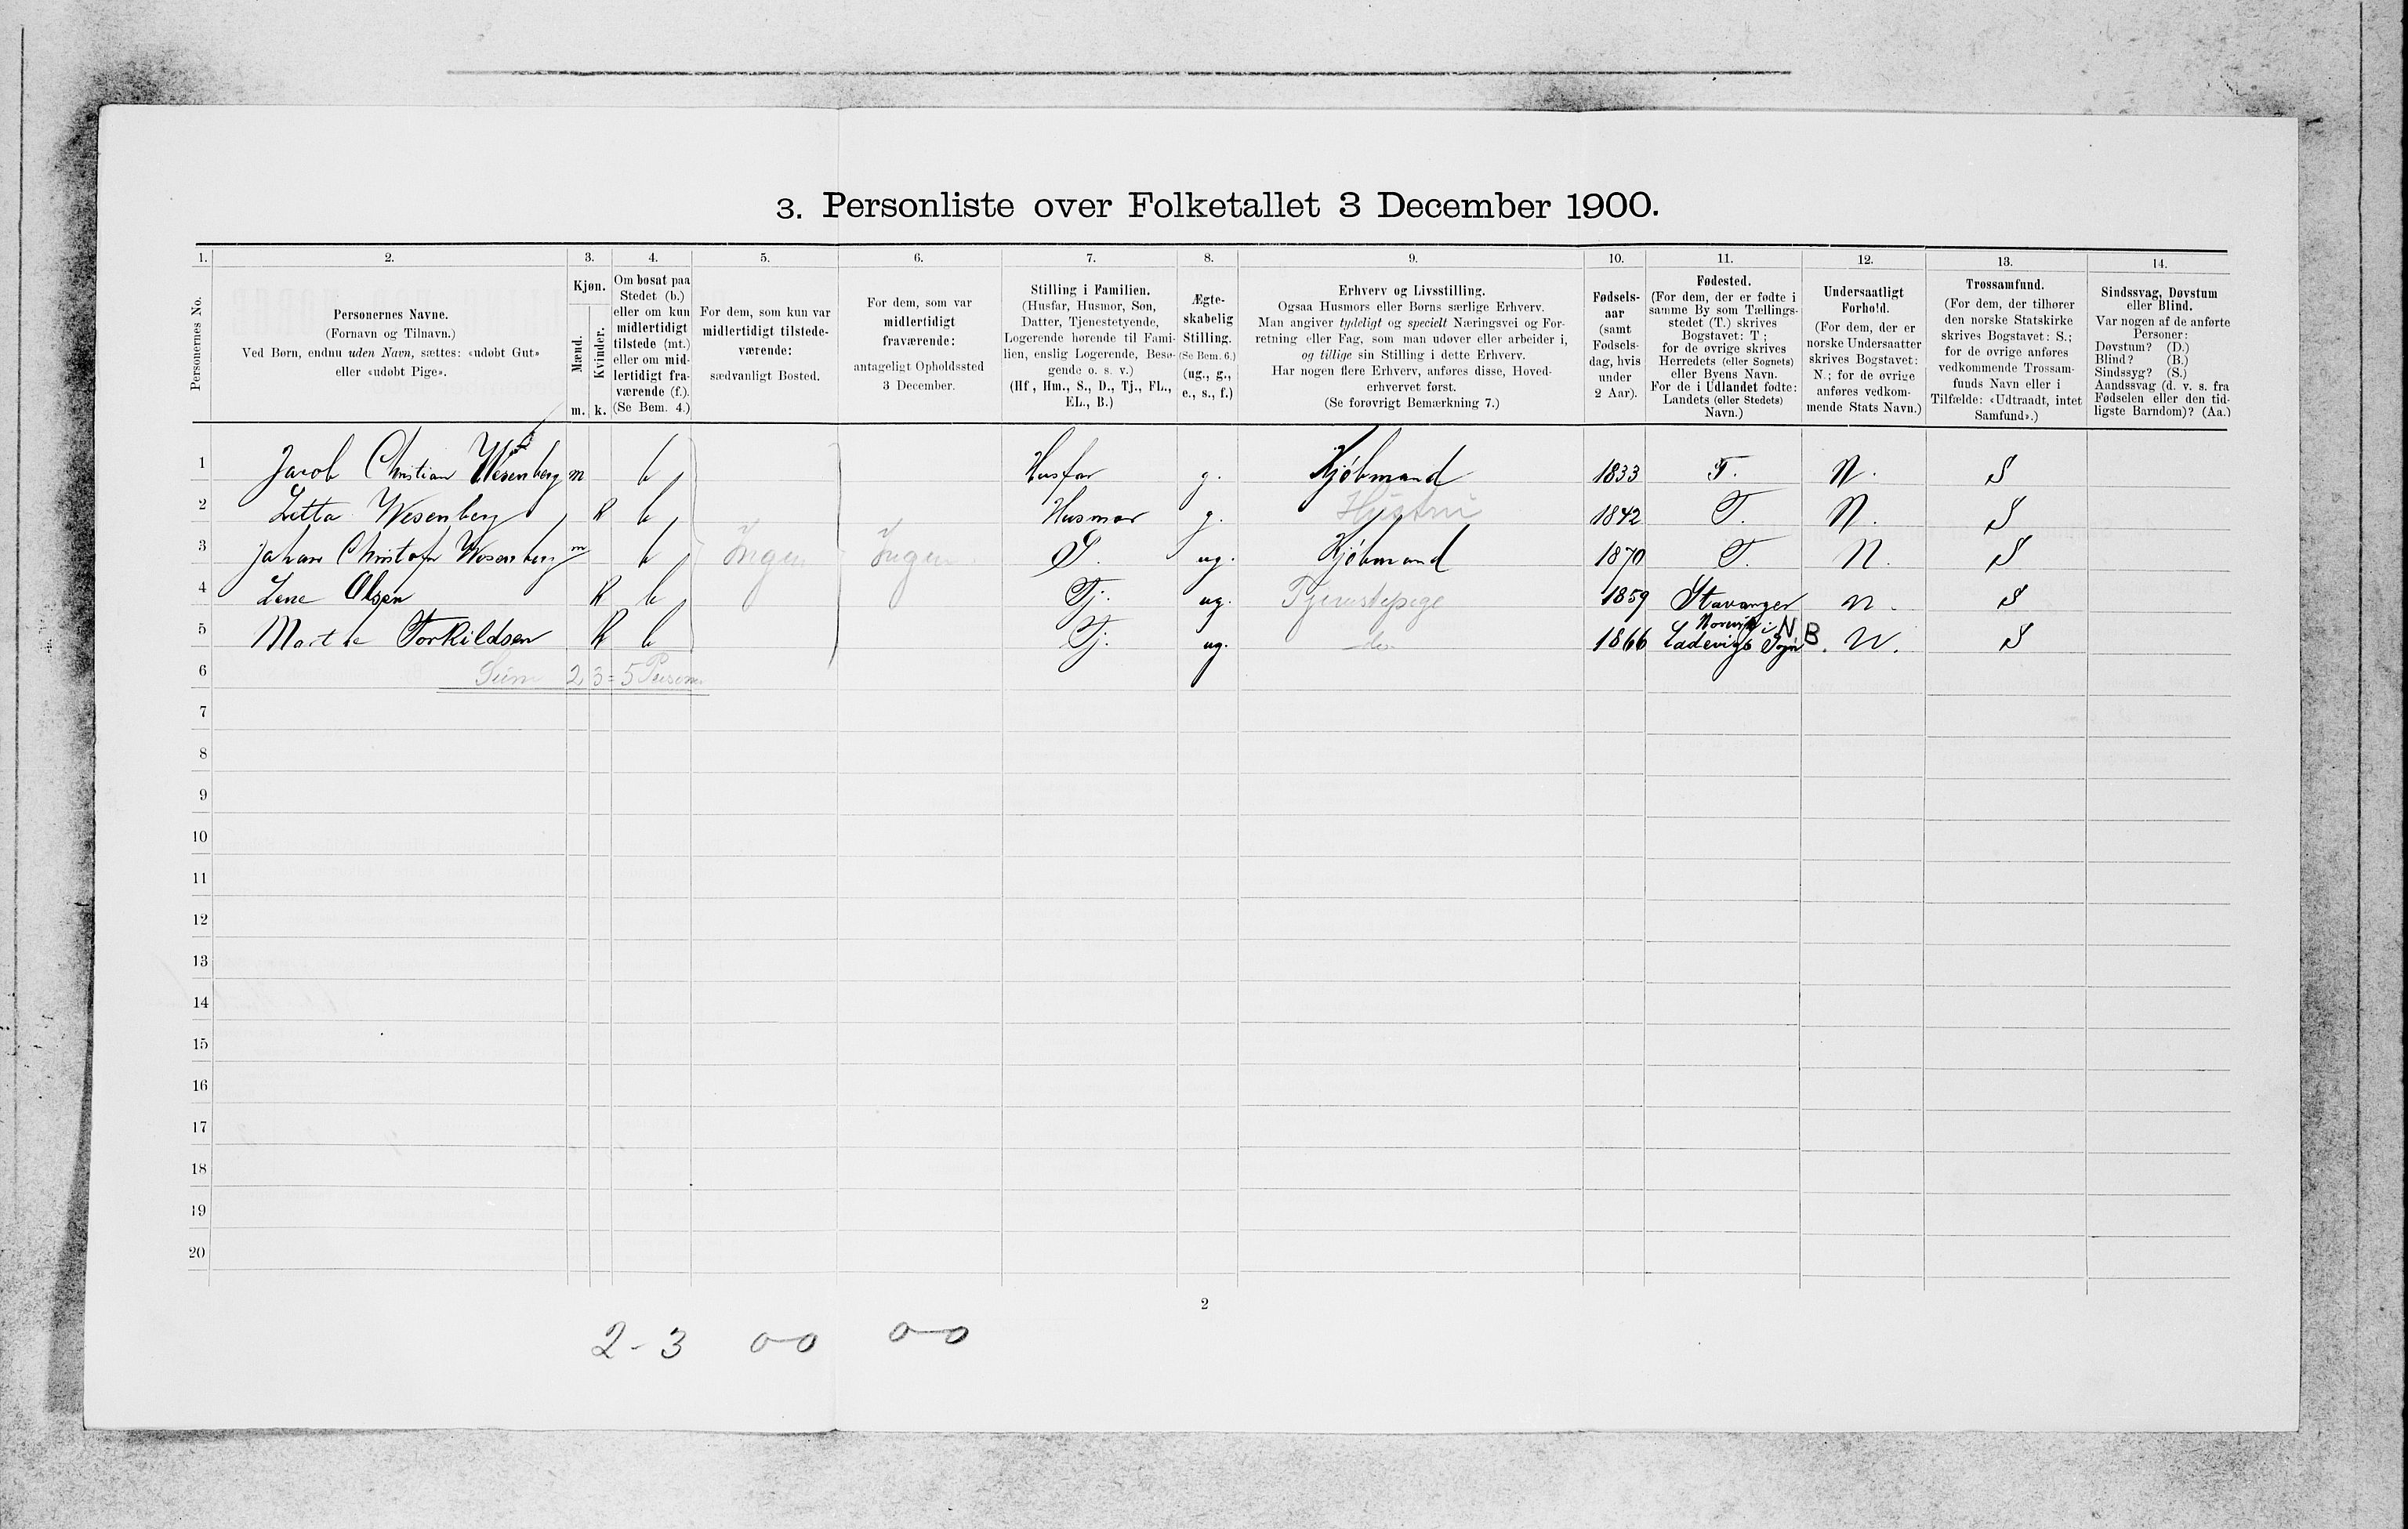 3. Personliste over Folketallet 3 December 1900.
1. 2. 3. 4. 5. 6. 7. 8. 9. 10. 11. 12. 13. 14.
Personernes No.
Personernes Navne.
(Fornavn og Tilnavn.)
Ved Børn, endnu uden Navn, sættes: «udøbt Gut»
eller «udøbt Pige».
Kjøn.
Mænd.
Kvinder.
m. k.
Om bosat paa
Stedet (b.)
eller om kun
midlertidigt
tilstede (mt.)
eller om mid-
lertidigt fra-
værende (f.).
(Se Bem. 4.)
For dem, som kun var
midlertidigt tilstede-
værende:
sædvanligt Bosted.
For dem, som var
midlertidigt
fraværende:
antageligt Opholdssted
3 December.
Stilling i Familien.
(Husfar, Husmor, Søn,
Datter, Tjenestetyende,
Logerende hørende til Fami-
lien, enslig Logerende, Besø-
gende o. s. v.)
(Hf, Hm., S., D., Tj., FL.,
EL., B.)
Ægte-
skabelig
Stilling.
(Se Bem. 6.)
(ug., g.,
e., s., f.)
Erhverv og Livsstilling.
Ogsaa Husmors eller Børns særlige Erhverv.
Man angiver tydeligt og specielt Næringsvei og For-
retning eller Fag, som man udøver eller arbeider i,
og tillige sin Stilling i dette Erhverv.
Har nogen flere Erhverv, anføres disse, Hoved-
erhvervet først.
(Se forøvrigt Bemærkning 7.)
Fødsels-
aar
(samt
Fødsels-
dag, hvis
under
2 Aar).
Fødested.
(For dem, der er fødte i
samme By som Tællings-
stedet (T.) skrives
Bogstavet: T;
for de øvrige skrives
Herredets (eller Sognets)
eller Byens Navn.
For de i Udlandet fødte:
Landets (eller Stedets)
Navn.)
Undersaatligt
Forhold.
(For dem, der er
norske Undersaatter
skrives Bogstavet:
N.; for de øvrige
anføres vedkom-
mende Stats Navn.)
Trossamfund.
(For dem, der tilhører
den norske Statskirke
skrives Bogstavet: S.;
for de øvrige anføres
vedkommende Trossam-
funds Navn eller i
Tilfælde: «Udtraadt, intet
Samfund».)
Sindssvag, Døvstum
eller Blind.
Var nogen af de anførte
Personer:
Døvstum? (D.)
Blind? (B.)
Sindssyg? (S.)
Aandssvag (d. v. s. fra
Fødselen eller den tid-
ligste Barndom)? (Aa.)
1 Jacob Christian Wesenberg m b Husfar g. Kjøbmand 1833 T. N. S
2 Zetta Wesenberg k b Husmor g. Hustru 1842 T. N. S
3 Johan Christofer Wesenberg m b Ingen Ingen S. ug. Kjøbmand 1870 T. N. S
4 Lene Olsen k b Tj. ug. Tjenestepige 1859 Stavanger N. S
5 Marthe Torkildsen k b Tj. ug. do 1866 Ladevigs Sogn NB. N. S
6 Sum 2 3 = 5 Personer
7
8
9
10
11
12
13
14
15
16
17
18
19
20
2
2-3 0-0 0-0